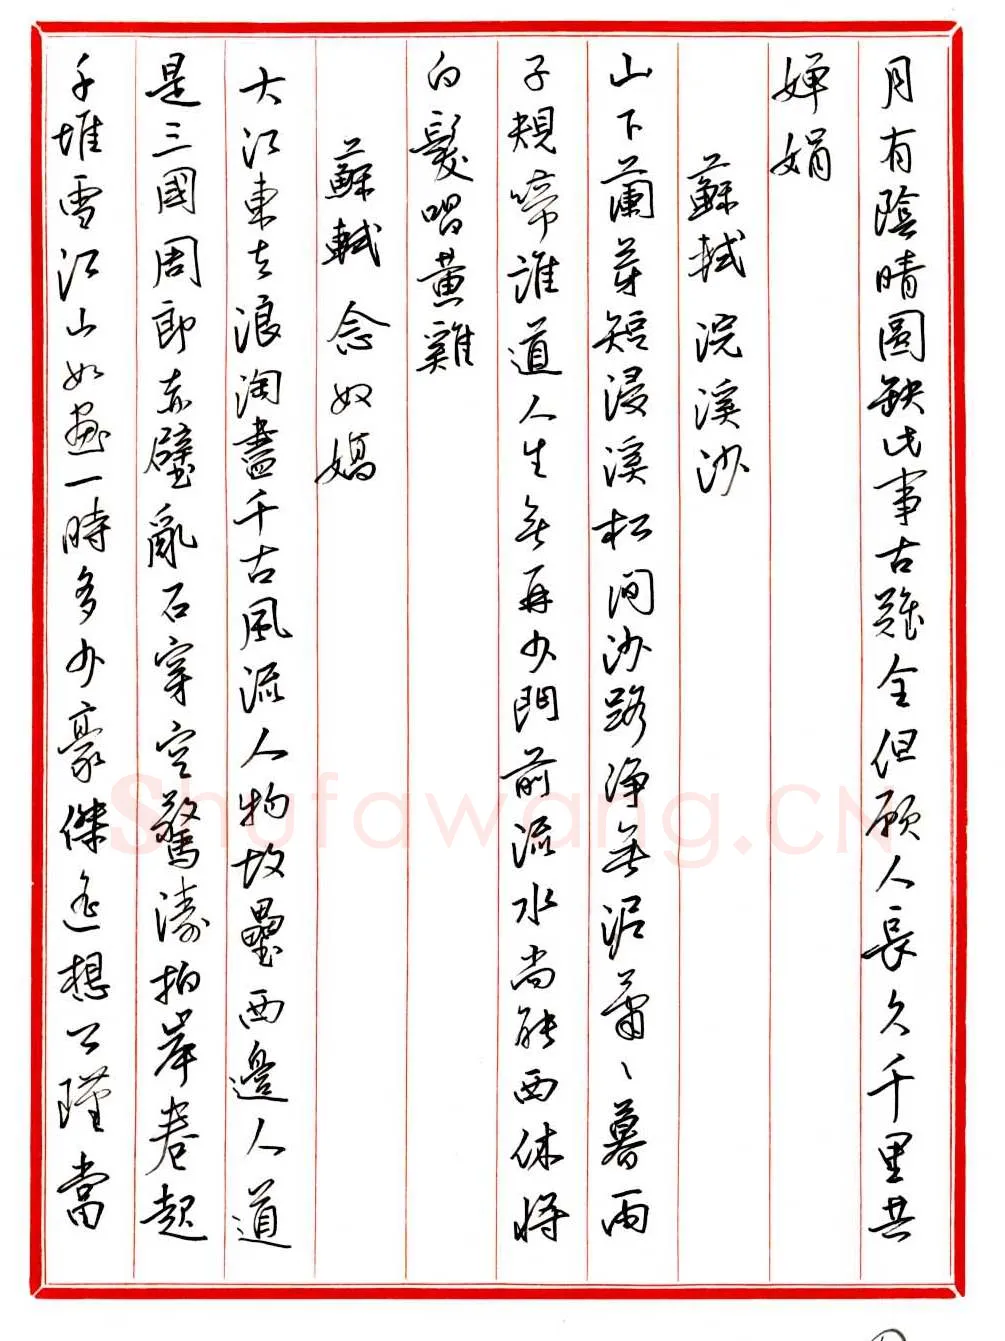 月有陰晴圓缺此事古難全但願人長久千里共
嬋娟
蘇軾 浣溪沙
山下蘭芽短浸溪松間沙路淨無泥蕭〻暮雨
子規啼誰道人生無再少門前流水尚能西休將
白髮唱黃雞
蘇軾 念奴嬌
大江東去浪淘盡千古風流人物故壘西邊人道
是三國周郎赤壁亂石穿空驚濤拍岸卷起
千堆雪江山如畫一時多少豪傑遙想公瑾當
Shufawang.CN